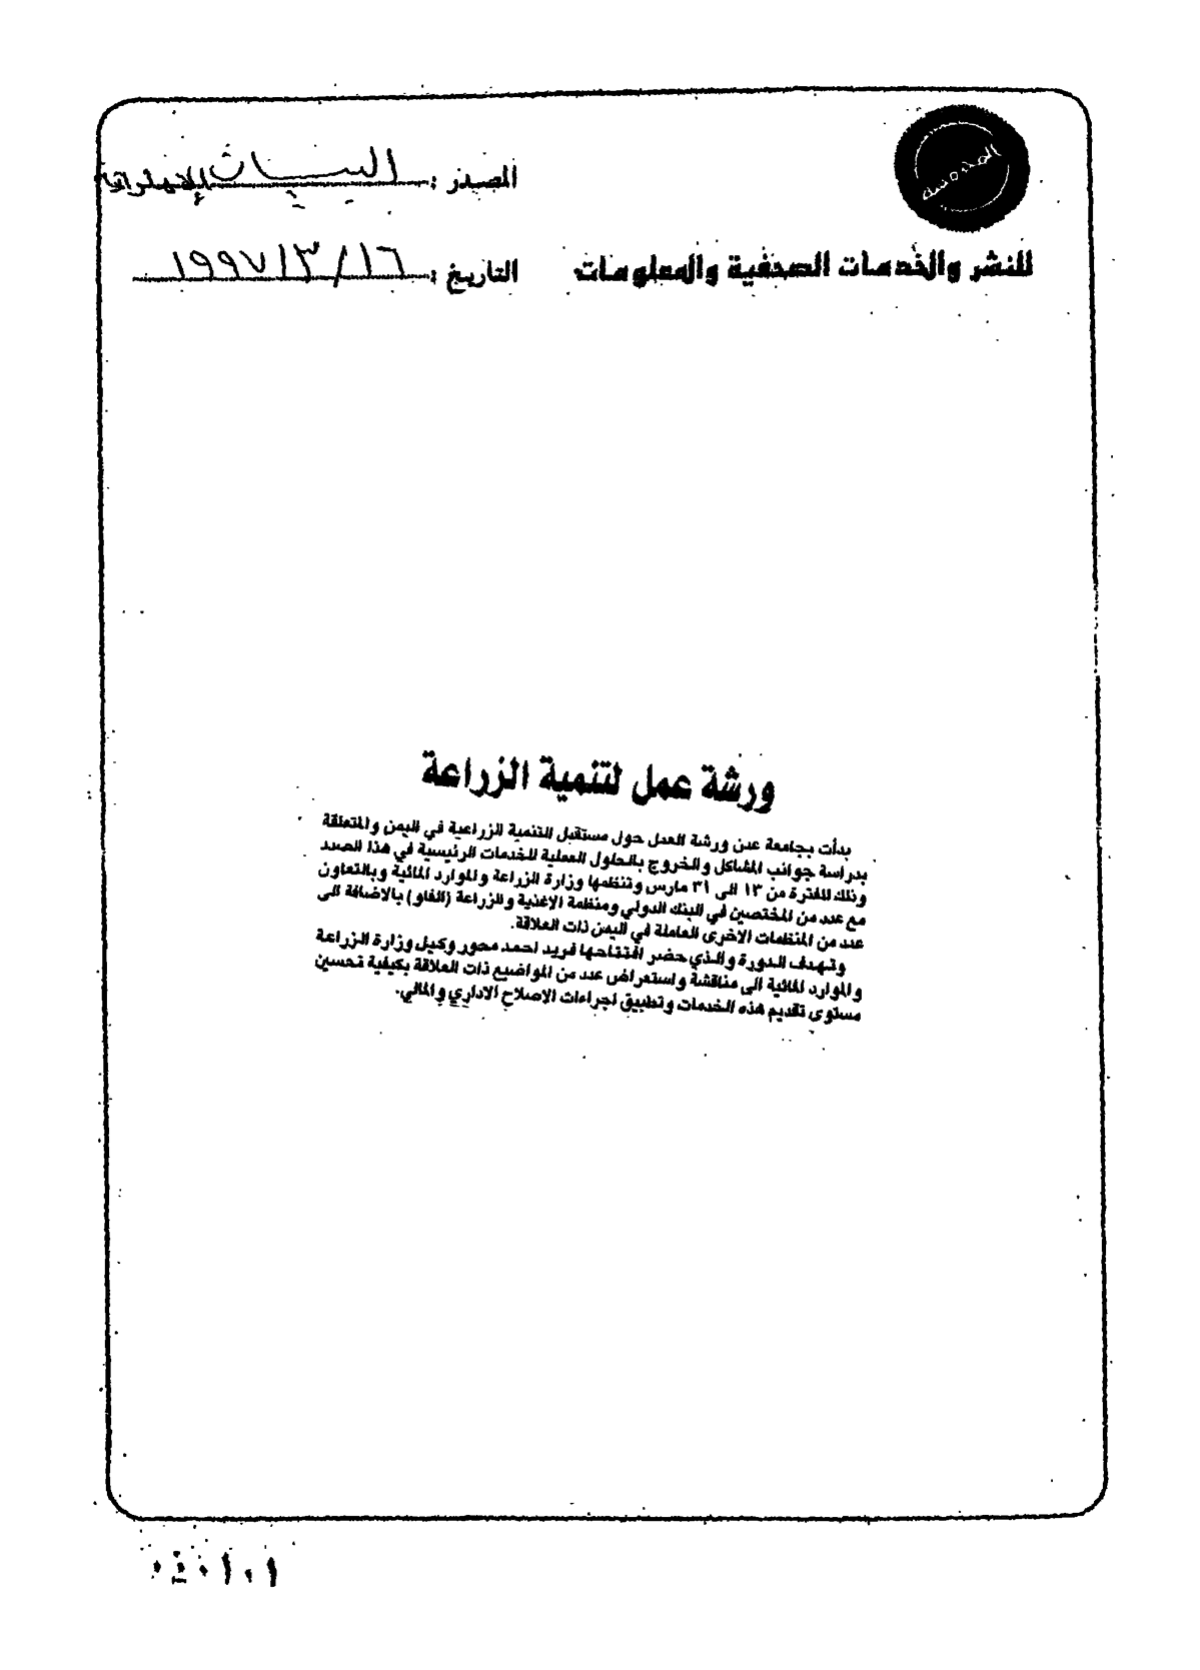 المصدر : البيان الإماراتية
للنشر والخدمات الصحفية والمعلومات
التاريخ : ١٦/٣/١٩٩٧
ورشة عمل لتنمية الزراعة
بدأت بجامعة عدن ورشة العمل حول مستقبل التنمية الزراعية في اليمن والمتعلقة
بدراسة جوانب المشاكل والخروج بالحلول العملية للخدمات الرئيسية في هذا الصدد
وذلك للفترة من ١٣ الى ٣١ مارس وتنظمها وزارة الزراعة والموارد المائية وبالتعاون
مع عدد من المختصين في البنك الدولي ومنظمة الاغذية والزراعة (الفاو) بالاضافة الى
عدد من المنظمات الاخرى العاملة في اليمن ذات العلاقة.
وتهدف الدورة والذي حضر افتتاحها فريد احمد محور وكيل وزارة الزراعة
والموارد المائية الى مناقشة واستعراض عدد من المواضيع ذات العلاقة بكيفية تحسين
مستوى تقديم هذه الخدمات وتطبيق اجراءات الاصلاح الاداري والمالي.